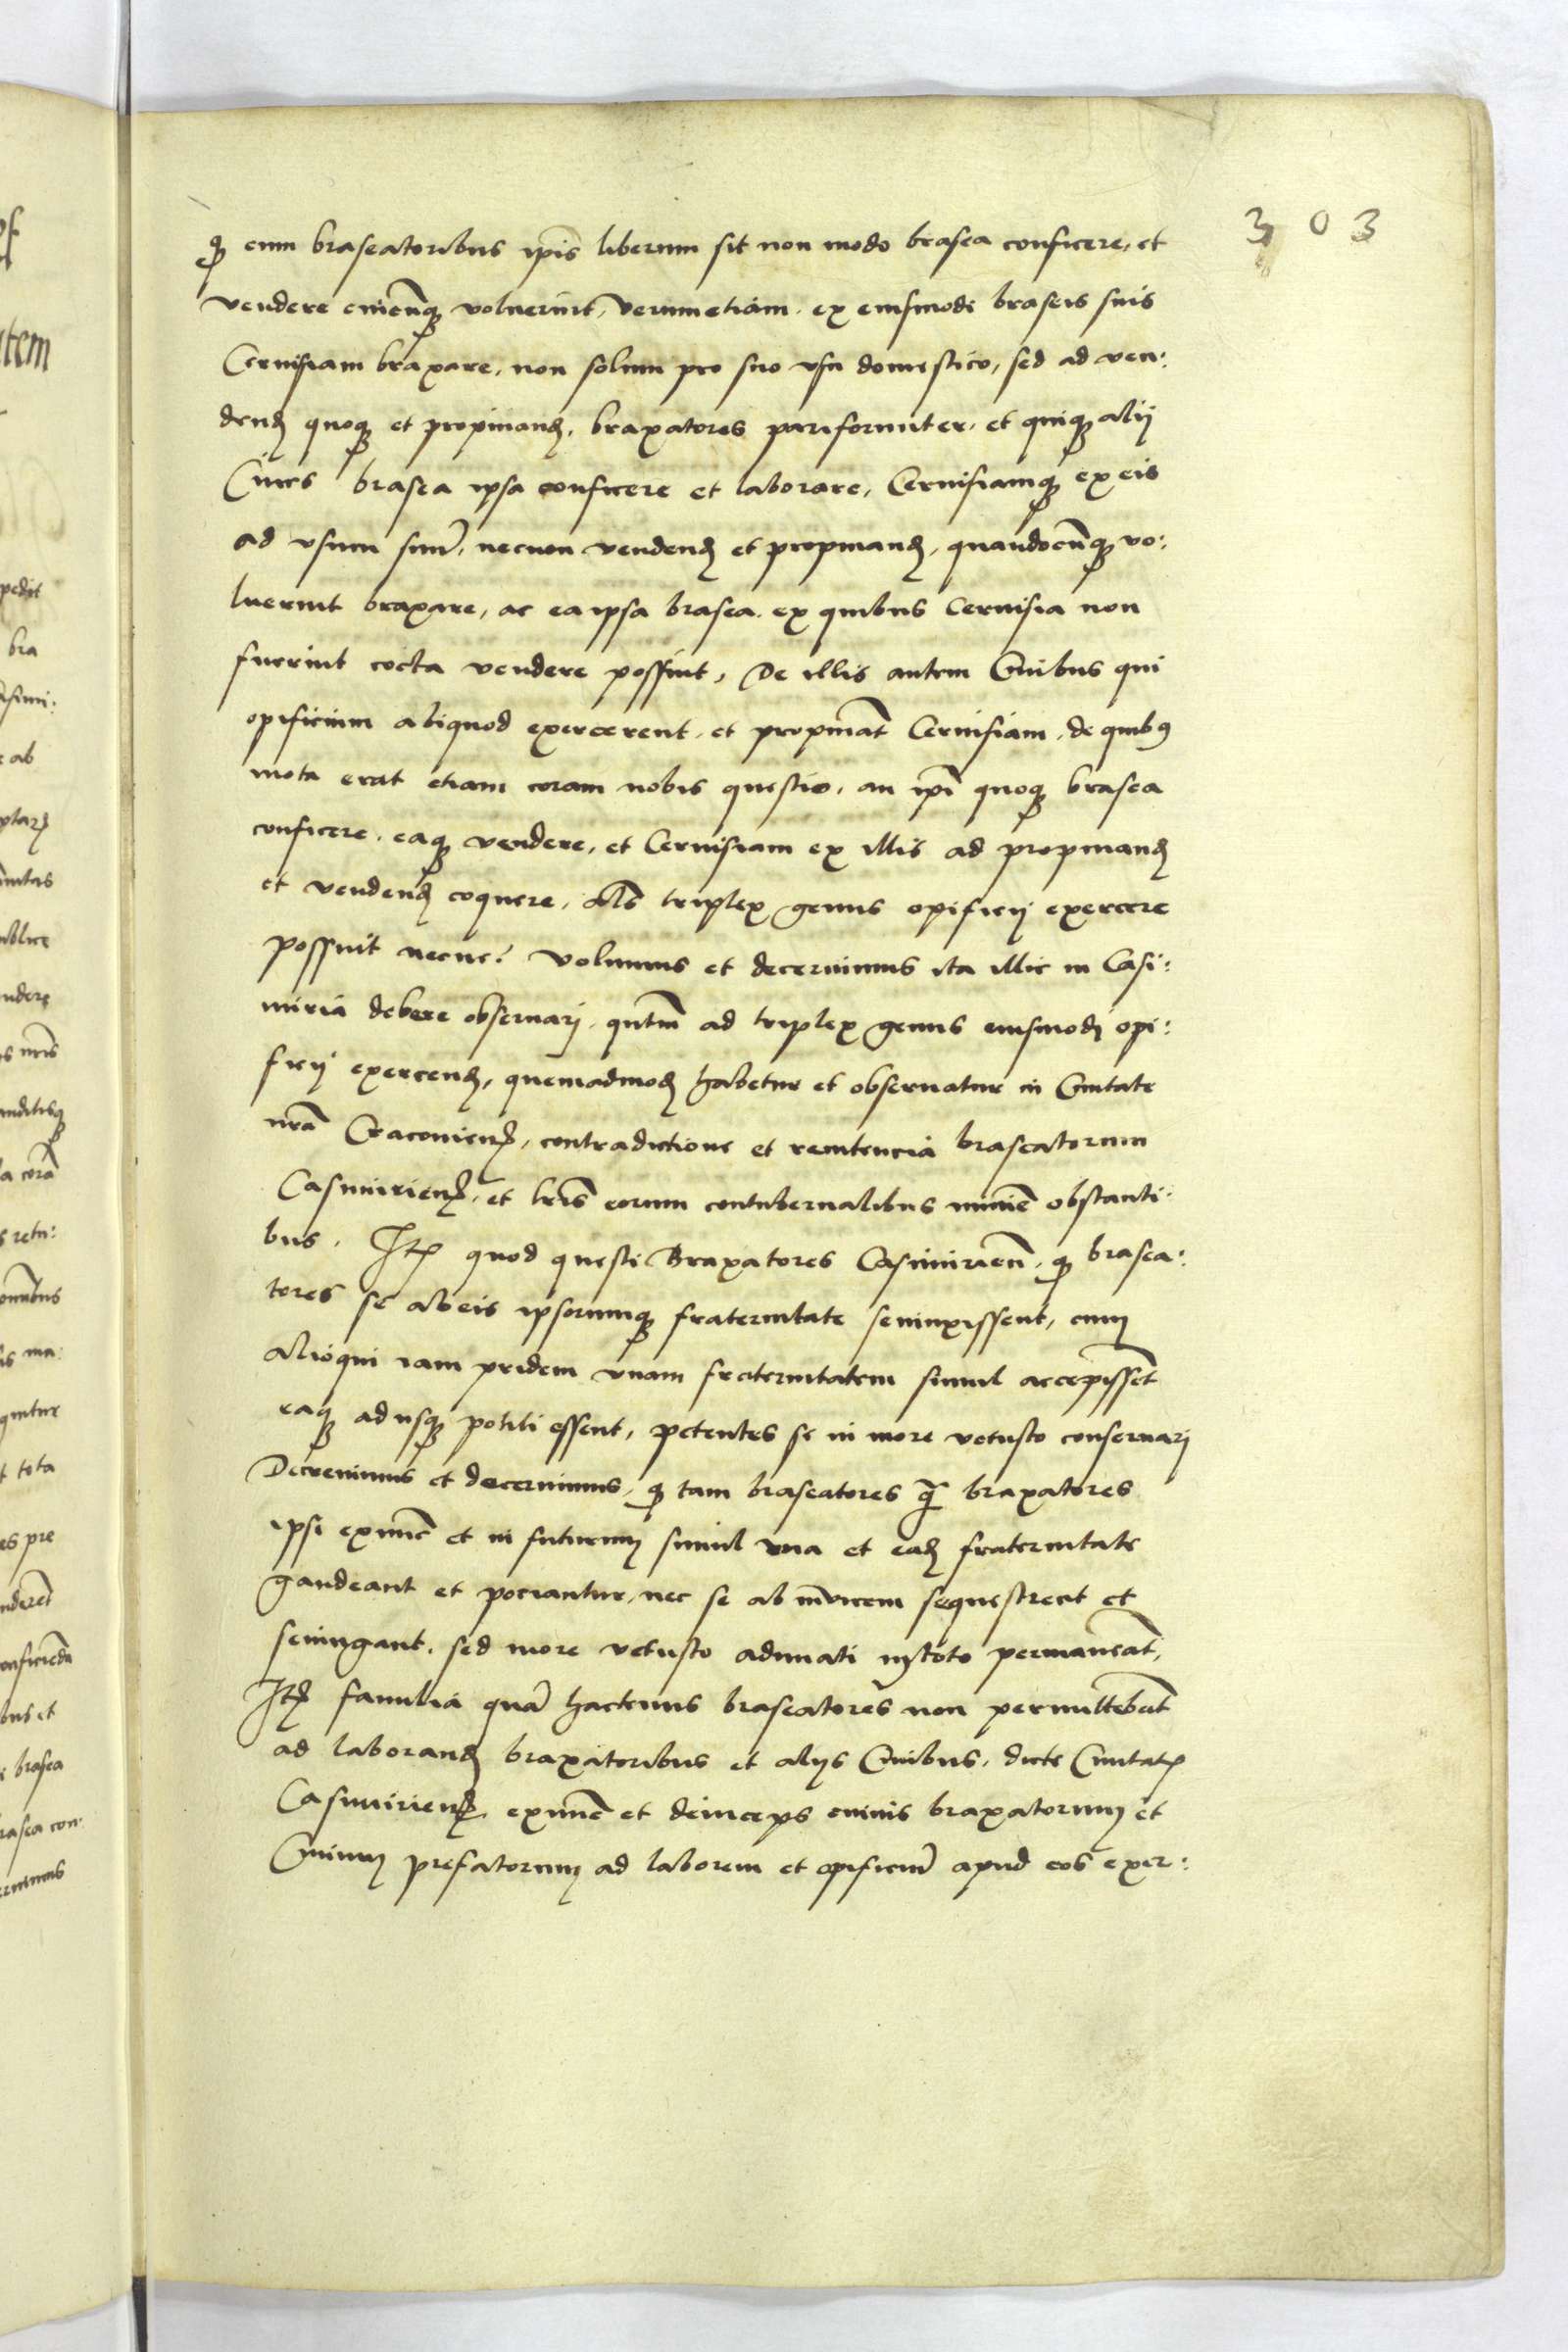 303
ꝙ cum braseatoribus ip̄is liberum sit non modo brasea conficere, et
vendere cuicūqꝫ voluerint, verumetiam ex eiusmodi braseis suis
Cervisiam braxare, non solum pro suo vsu domestico, sed ad ven:
dendꝫ quoqꝫ et propinandꝫ, braxatores pariformiter, et quiqꝫ alij
Cives brasea ipsa conficere et laborare, Cervisiamqꝫ ex eis
ad vsum suū, necnon vendendꝫ et propinandꝫ, quandocūqꝫ vo:
luerint braxare, ac ea ipsa brasea ex quibus Cervisia non
fuerint cocta vendere possint, De illis autem Civibus qui
opificium aliquod exercerent, et propināt Cervisiam, de quibꝰ
mota erat etiam coram nobis questio, an ip̄i quoqꝫ brasea
conficere, eaqꝫ vendere, et Cervisiam ex illis ad propinandꝫ
et vendendꝫ coquere, al̄s triplex genus opificij exercere
possint necne? Volumus et decernimus ita illic in Casi:
miria debere observari, qn̄tm̄ ad triplex genus eiusmodi opi:
ficij exercendꝫ, quemadmodꝫ habetur et observatur in Civitate
nr̄a Cracovienꝫ, contradictione et renitencia braseatorum
Casimirienꝫ, et lr̄is eorum contubernalibus minie obstanti:
bus. Itꝫ quod questi Braxatores Casimirien̄, ꝙ brasea:
tores se ab eis ipsorumqꝫ fraternitate seiunxissent, cum
alioqui iam pridem vnam fraternitatem simul accepissēt
eaqꝫ ad usqꝫ potiti essent, petentes se in more vetusto conservari
Decrevimus et decernimus, ꝙ tam braseatores q̄ braxatores
ipsi exnūc et in futurum simul vna et eadꝫ fraternitate
gaudeant et pociantur, nec se ab invicem sequestrent et
seiungant, sed more vetusto adunati in toto permaneāt,
Itꝫ familia quā hactenus braseatores non permittebāt
ad laborandꝫ braxatoribus et alijs Civibus, dicte Civitatꝫ
Casimirienꝫ, exnūc et deinceps cuivis braxatorum et
Civium prefatorum ad laborem et opificiū apud eos exer: